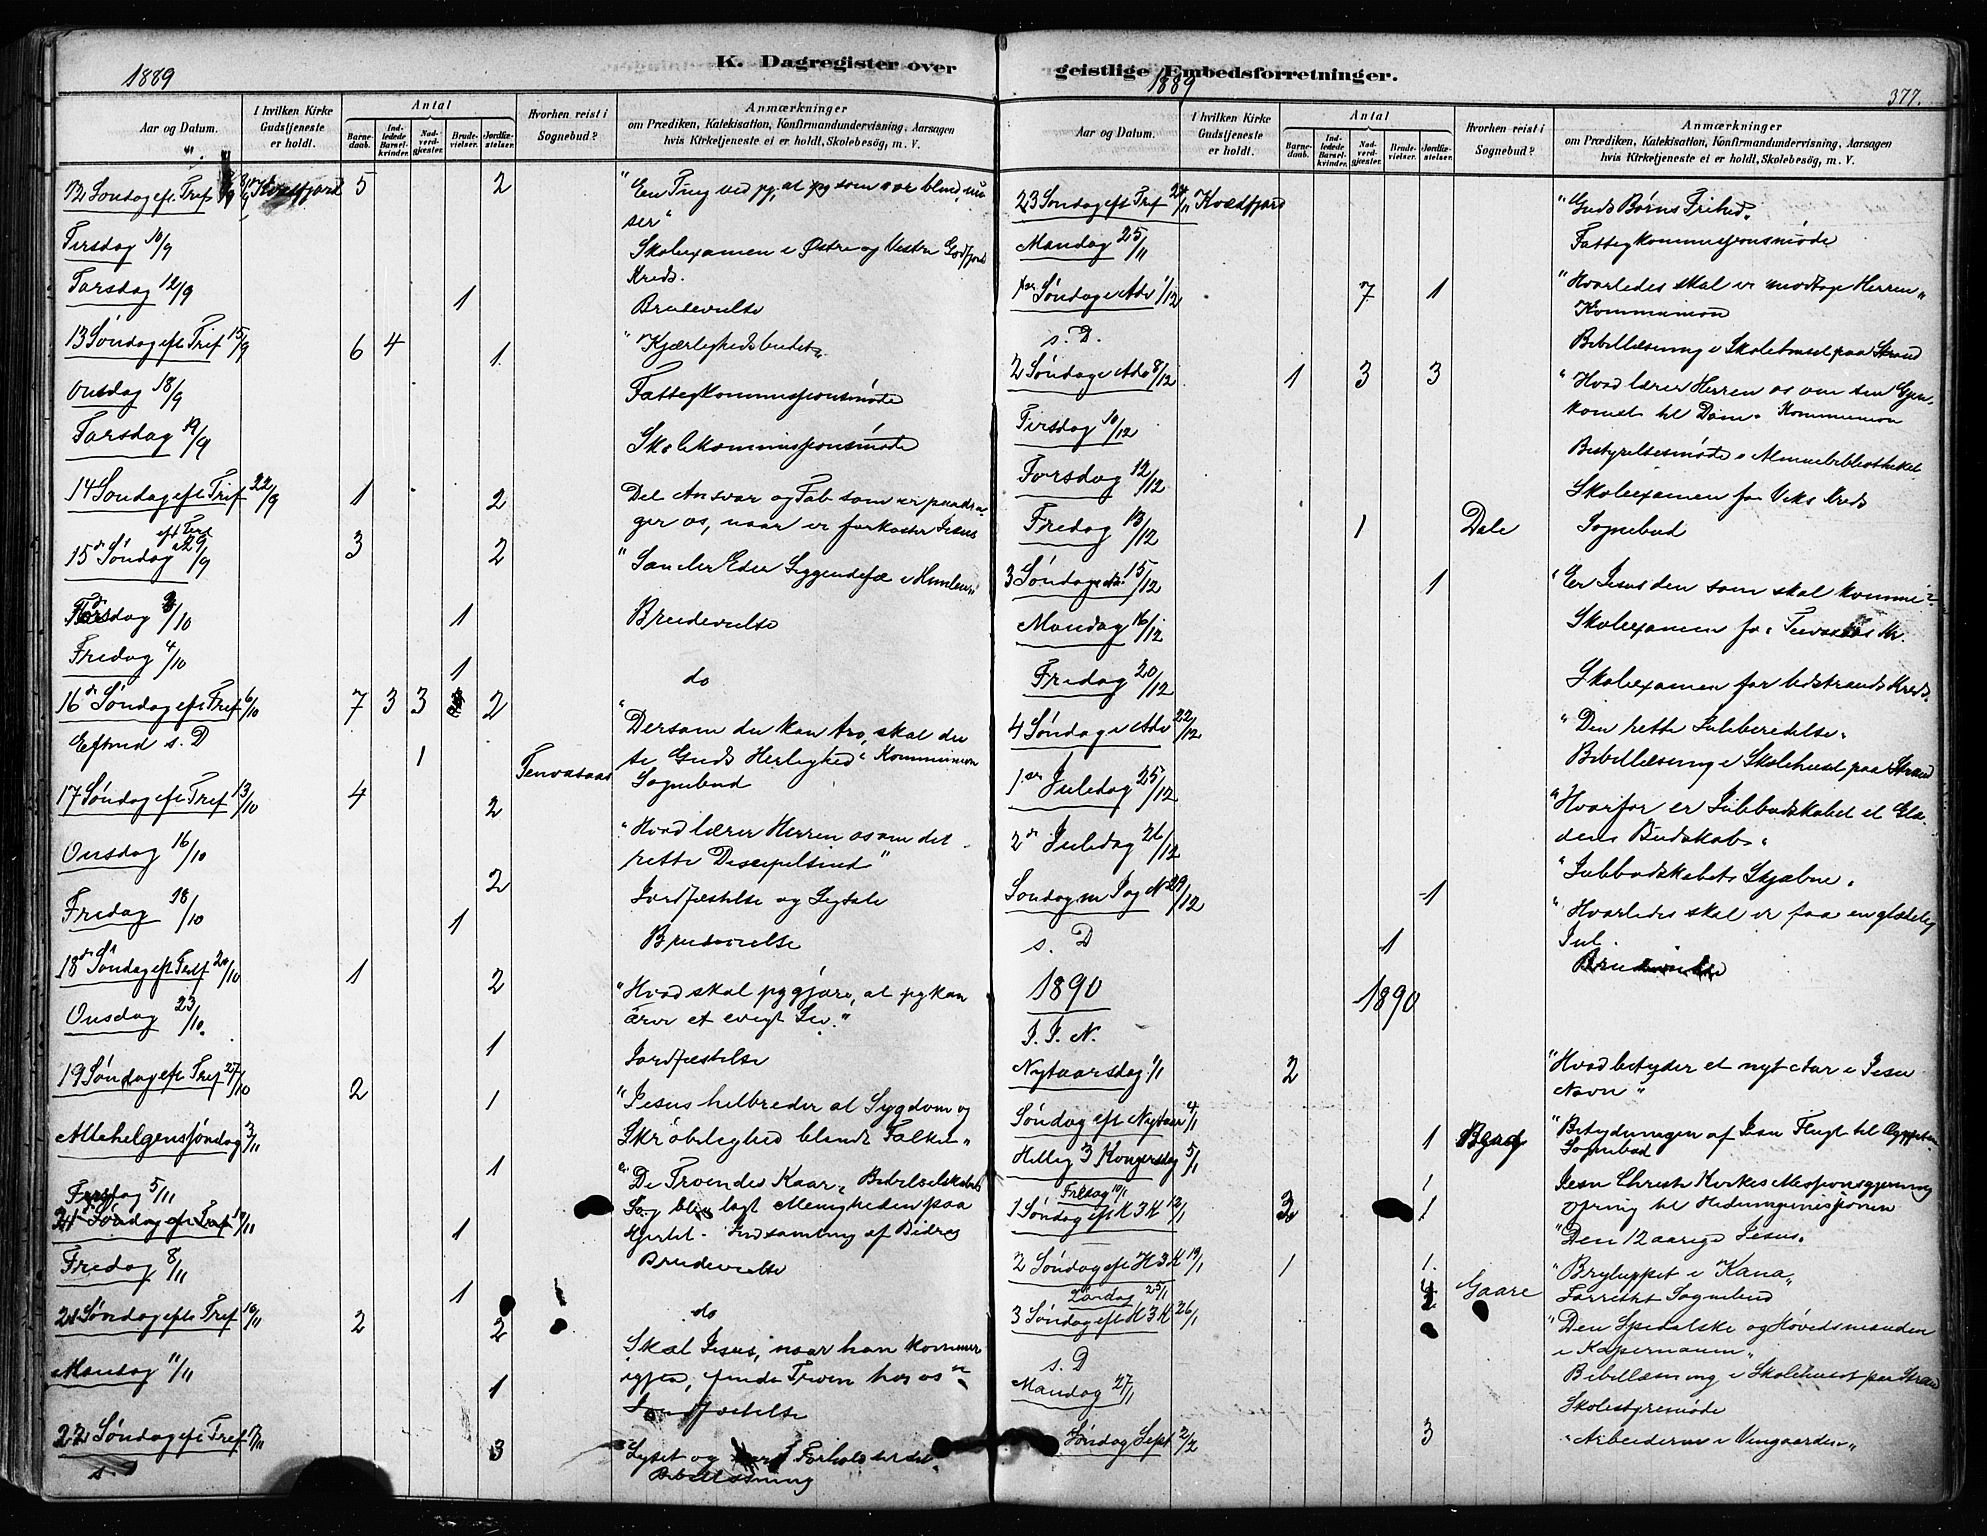 K. Dagregister over
1889
Aar og Datum.
I hvilken Kirke Gudstjeneste er holdt.
Antal
Barnedaab.
Indledede Barselkvinder.
Nadverdgjester.
Brudevielser.
Jordfæstelser.
Hvorhen reist i Sognebud?
Anmærkninger
om Prædiken, Katekisation, Konfirmandundervisning, Aarsagen
hvis Kirketjeneste ei er holdt, Skolebesøg, m. V.
12 Søndag eft Tref Kvædfjord 5 2 "En Ting ved jeg, at jeg som var blind, nu
ser"
Tirsdag 10/9 Skoleexamen i Østre og Vestre Godfjord
Kreds.
Torsdag 12/9 1 Brudevielse
13 Søndag eft Tref 15/9 6 4 1 "Kjærlighedsbudet"
Onsdag 18/9 Fattigkommissionsmøde
Torsdag 19/9 Skolekommissionsmøde
14 Søndag eft Tref 22/9 1 2 Det Ansvar og Tab som vi paadra-
ger os, naar vi forkaster Jesus
15de Søndag eft Tref 29/9 3 2 "Samler Eder Liggendefæ i Himlen"
Torsdag 3/10 1 Brudevielse
Fredag 4/10 1 do
16de Søndag eft Tref 6/10 7 3 3 2 "Dersom du kan tro, skal du
se Guds Herlighed" Kommunion
Eftmd s. D 1 Tenvasaas Sognebud
17 Søndag eft Tref 13/10 4 2 "Hvad lærer Herren os om det
rette Discipelsind"
Onsdag 16/10 2 Jordfæstelse og Ligtale
Fredag 18/10 1 Brudevielse
18de Søndag eft Tref 20/10 1 2 "Hvad skal jeg gjøre, at jeg kan
arve et evigt Liv."
Onsdag 23/10. 1 Jordfæstelse
19 Søndag eft Tref 27/10 2 1 "Jesus helbreder al Sygdom og
Skrøbelighed blandt Folket"
Allehelgenssøndag 3/11 1 "De Troendes Kaar" Bibelselskabets
Sag blev lagt Menigheden paa
Hjertet. Indsamling af Bidrag
5/11 1 Brudevielse
Fredag 8/11 1 do
21 Søndag efter Tref 10/11 2 2 Skal Jesus, naar han kommer
igjen, finde Troen hos os"
Mandag 11/11 1 Jordfæstelse
22 Søndag eft Tref 17/11 3 Lyset og Forhold til det
s. D Bibellæsning
geistlige Embedsforretninger.
1889
377.
Aar og Datum.
I hvilken Kirke Gudstjeneste er holdt.
Antal
Barnedaab.
Indledede Barselkvinder.
Nadverdgjester.
Brudevielser.
Jordfæstelser.
Hvorhen reist i Sognebud?
Anmærkninger
om Prædiken, Katekisation, Konfirmandundervisning, Aarsagen
hvis Kirketjeneste ei er holdt, Skolebesøg, m. V.
23 Søndag eft Tref 24/11 Kvædfjord "Guds Børns Frihed"
Mandag 25/11 Fattigkommissionsmøde
1ste Søndag i Adv 1/12 7 1 "Hvorledes skal vi modtage Herren"
Kommunion
s. D. Bibellæsning i Skolehuset paa Strand
2 Søndag i Adv 8/12 1 3 3 "Hvad lærer Herren os om sin Gjen-
komst til Dom" Kommunion
Tirsdag 10/12 Bestyrelsesmøde i Almuebibliotheket
Torsdag 12/12 Skoleexamen for Viks Kreds
Fredag 13/12 1 Dale Sognebud
3 Søndag i Adv. 15/12 1 "Er Jesus den som skal komme?"
Mandag 16/12 Skoleexamen for Tenvasaas Kr.
Fredag 20/12 Skoleexamen for Udstrands Kreds.
4 Søndag i Adv 22/12 "Den rette Juleberedelse"
Bibellæsning i Skolehuset paa Strand
1ste Juledag 25/12 "Hvorfor er Julebudskabet et Glæ-
dens Budskab"
2de Juledag 26/12 "Julebudskabets Skjæbne"
Søndag m J og N 29/12 1 "Hvorledes skal vi faa en glædelig
Jul.
s. D 1 Brudevielse
1890 1890
I. J. N.
Nytaarsdag 1/1 2 "Hvad betyder et nyt Aar i Jesu
Navn"
Søndag eft Nytaar 4/1 1 Bygd "Betydningen af Jesu Flugt til Ægypten
Sognebud
Hellig 3 Kongersdag 5/1 1 Jesu Christi Kirkes Missionsgjerning
Ofring til Hedningemissionen
Fredag 10/1
1 Søndag eft H 3 K 12/1 3 1 "Den 12 aarige Jesus"
2 Søndag eft H 3 K 19/1 1 1 "Bryluppet i Kana"
Lørdag 25/1 Gaare Forrettet Sognebud
3 Søndag eft H 3 K 26/1 2 "Den Spedalske og Høvedsmanden
i Kapernaum"
s. D Bibellæsning i Skolehuset paa Strand
Mandag 27/1 Skolestyremøde
Søndag Sept 2/2 3 "Arbeiderne i Vingaarden"